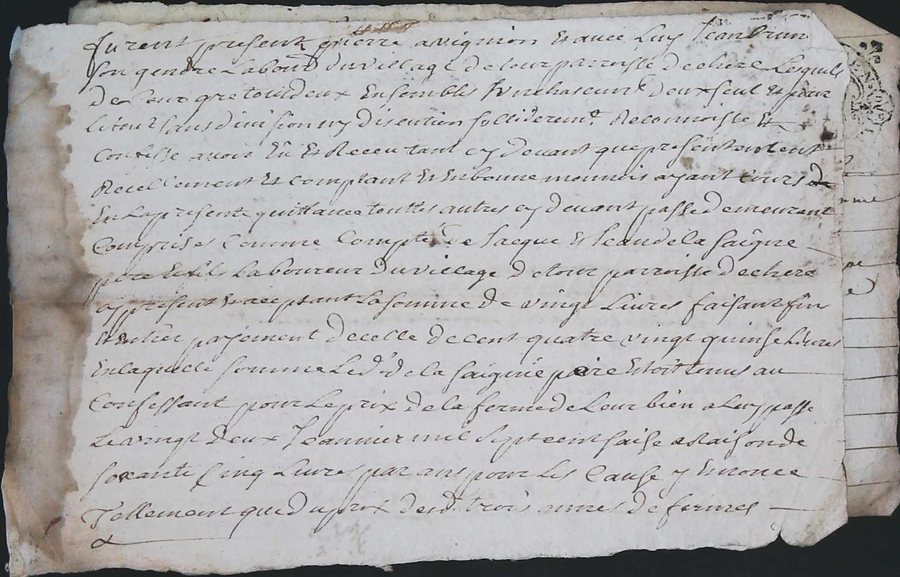 furent present pierre avignion et avec luy Jean brun
son gendre Labour du village de tour parroisse de chere Lesquels
de Leur gre tout deux Ensemble Un chaseun deux seul et pour
Le tout sans division ny disention sollideremt Reconnoisse et
Confesse avoir Eu et Receu tant cy devant que presentement
Reeellement et comptant et En bonne monnois ayant cours &
En La presente quittance touttes autres cy devant passe demeurant
Comprises Comme Compte de Jacque et Jean de la Saigne
pere et fil Laboureur du village de tour parroisse de chere
a present et acceptant La somme de vingt Livres faisant fin
Entier payement de celle de cent quatre vingt quinse Livres
En laquelle somme Led de la saigne pere Estoit tenus au
Confessant pour Le prix de la ferme de Leur bien a Luy passe
Le vingt deux Jeanvier mil sept cent saise a Raison de
soxante sinq Livres par ans pour Les Cause y Enonce
Tellement que du prix desd trois annes de fermes